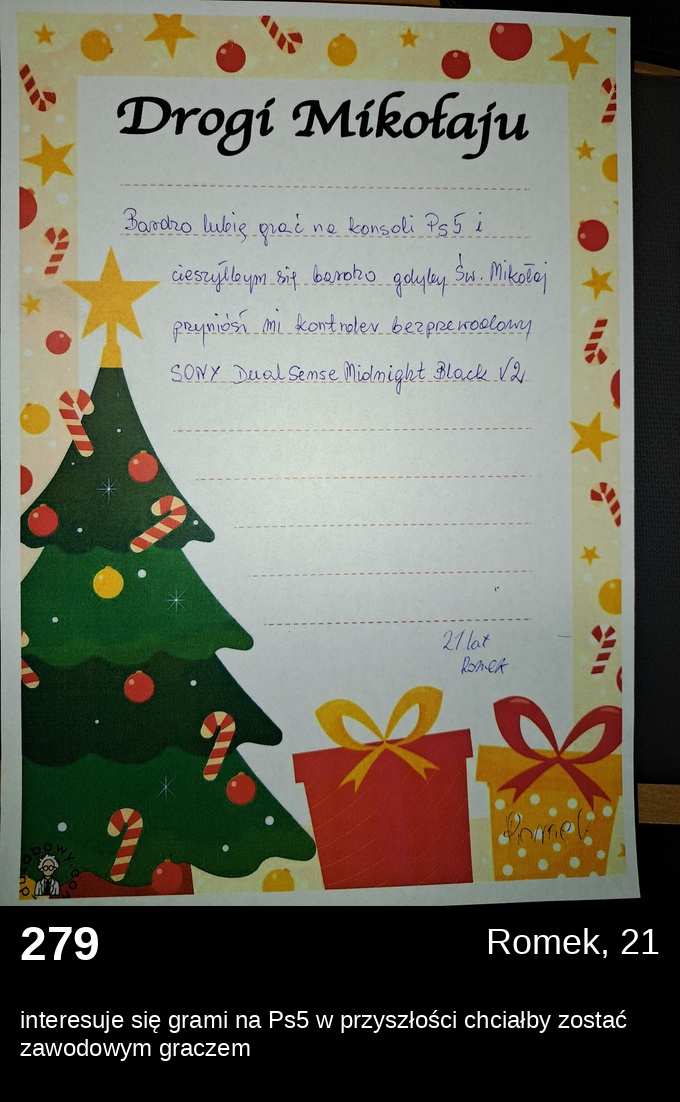 Drogi Mikołaju
Bardzo lubię grać na konsoli Ps5 i
cieszyłbym się bardzo gdyby Św. Mikołaj
przyniósł mi kontroler bezprzewodowy
SONY DualSense Midnight Black V2
21 lat
Romek
Romek
279
Romek, 21
interesuje się grami na Ps5 w przyszłości chciałby zostać
zawodowym graczem